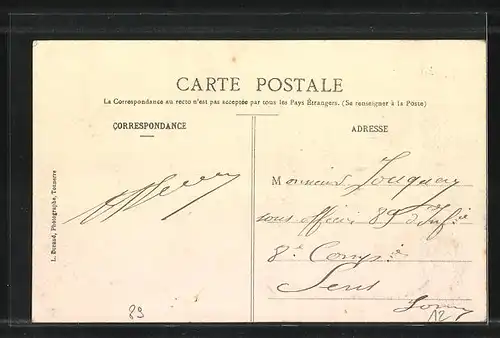 CARTE POSTALE
La Correspondance au recto n'est pas acceptée par tous les Pays Étrangers. (Se renseigner à la Poste)
CORRESPONDANCE
ADRESSE
L. Durand, Photographe, Tonnerre
Monsieur
sous officier 89 d'Inf.ie
8e Compie
Sens
89
12